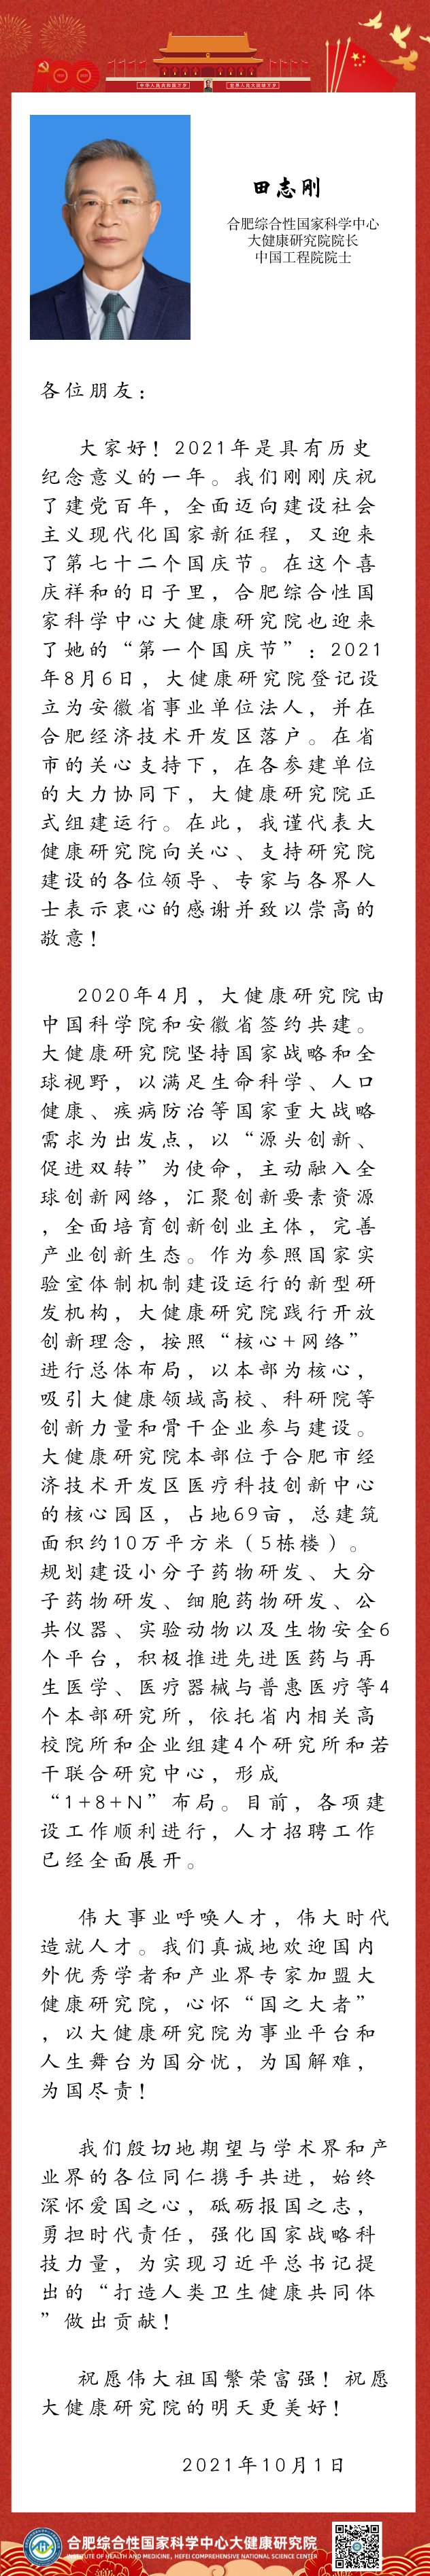 中华人民共和国万岁
世界人民大团结万岁
田志刚
合肥综合性国家科学中心
大健康研究院院长
中国工程院院士
各位朋友：
大家好！2021年是具有历史
纪念意义的一年。我们刚刚庆祝
了建党百年，全面迈向建设社会
主义现代化国家新征程，又迎来
了第七十二个国庆节。在这个喜
庆祥和的日子里，合肥综合性国
家科学中心大健康研究院也迎来
了她的“第一个国庆节”：2021
年8月6日，大健康研究院登记设
立为安徽省事业单位法人，并在
合肥经济技术开发区落户。在省
市的关心支持下，在各参建单位
的大力协同下，大健康研究院正
式组建运行。在此，我谨代表大
健康研究院向关心、支持研究院
建设的各位领导、专家与各界人
士表示衷心的感谢并致以崇高的
敬意！
2020年4月，大健康研究院由
中国科学院和安徽省签约共建。
大健康研究院坚持国家战略和全
球视野，以满足生命科学、人口
健康、疾病防治等国家重大战略
需求为出发点，以“源头创新、
促进双转”为使命，主动融入全
球创新网络，汇聚创新要素资源
，全面培育创新创业主体，完善
产业创新生态。作为参照国家实
验室体制机制建设运行的新型研
发机构，大健康研究院践行开放
创新理念，按照“核心+网络”
进行总体布局，以本部为核心，
吸引大健康领域高校、科研院等
创新力量和骨干企业参与建设。
大健康研究院本部位于合肥市经
济技术开发区医疗科技创新中心
的核心园区，占地69亩，总建筑
面积约10万平方米（5栋楼）。
规划建设小分子药物研发、大分
子药物研发、细胞药物研发、公
共仪器、实验动物以及生物安全6
个平台，积极推进先进医药与再
生医学、医疗器械与普惠医疗等4
个本部研究所，依托省内相关高
校院所和企业组建4个研究所和若
干联合研究中心，形成
“1+8+N”布局。目前，各项建
设工作顺利进行，人才招聘工作
已经全面展开。
伟大事业呼唤人才，伟大时代
造就人才。我们真诚地欢迎国内
外优秀学者和产业界专家加盟大
健康研究院，心怀“国之大者”
，以大健康研究院为事业平台和
人生舞台为国分忧，为国解难，
为国尽责！
我们殷切地期望与学术界和产
业界的各位同仁携手共进，始终
深怀爱国之心，砥砺报国之志，
勇担时代责任，强化国家战略科
技力量，为实现习近平总书记提
出的“打造人类卫生健康共同体
”做出贡献！
祝愿伟大祖国繁荣富强！祝愿
大健康研究院的明天更美好！
2021年10月1日
合肥综合性国家科学中心大健康研究院
INSTITUTE OF HEALTH AND MEDICINE, HEFEI COMPREHENSIVE NATIONAL SCIENCE CENTER